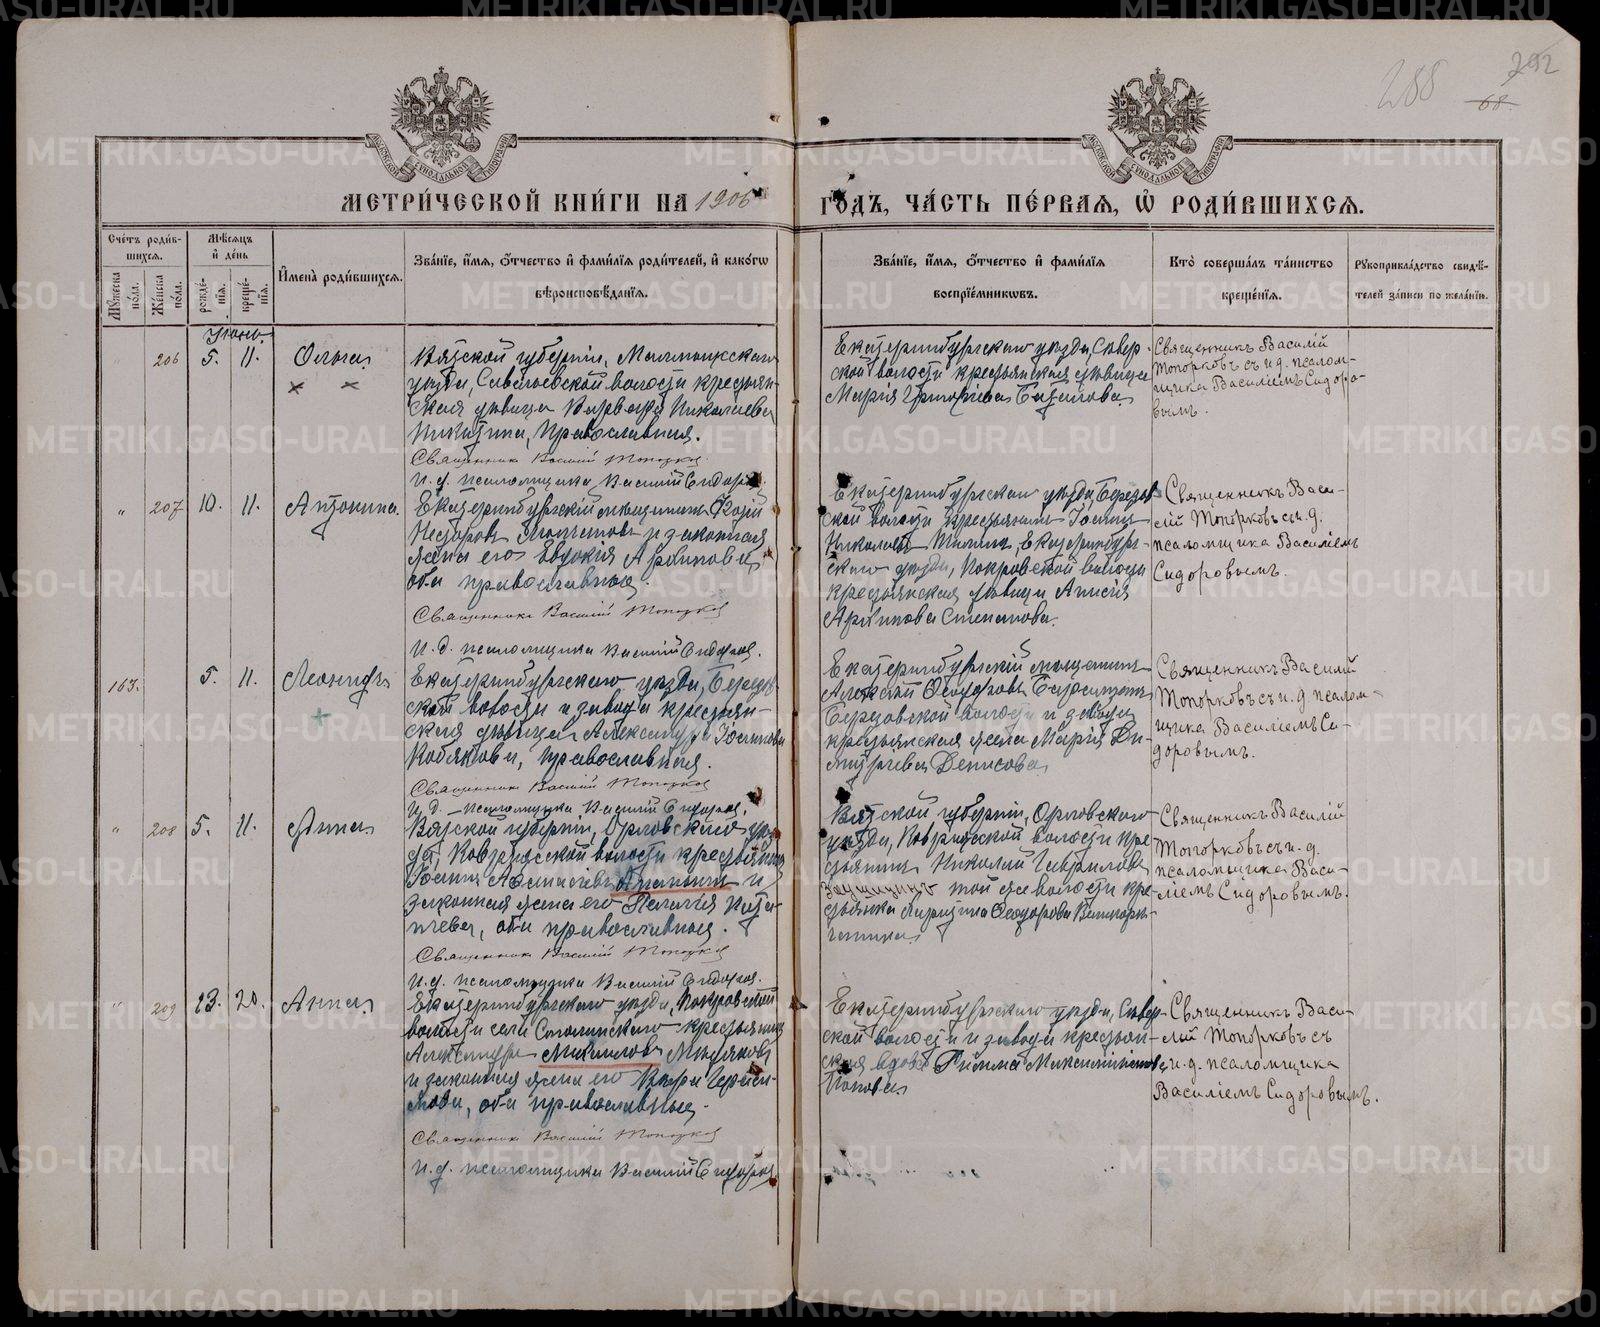 288
292
68
МЕТРИ́ЧЕСКОЙ КНИ́ГИ НА 1906 ГО́ДЪ, ЧА́СТЬ ПЕ́РВАЯ, Ѡ҆ РОДИ́ВШИХСЯ.
Сче́тъ роди́в-
шихся.
Мꙋ́жеска по́ла.
Же́нска по́ла.
Мѣ́сяцъ
и҆ де́нь
рожде́-
нїя.
креще́-
нїя.
И҆мена̀ роди́вшихся.
Зва́нїе, и҆́мя, ѻ҆́тчество и҆ фами́лїя роди́телей, и҆ како́гѡ
вѣроисповѣ́данїя.
Зва́нїе, и҆́мя, ѻ҆́тчество и҆ фами́лїя
воспрїе́мникѡвъ.
Кто̀ соверша́лъ та́инство
креще́нїя.
Рꙋкоприкла́дство свидѣ́-
телей за́писи по жела́нїю.
Іюнь.
206 5. 11. Ольга
Вятской губерніи, Малмыжскаго
уѣзда, Савальевской волости крестьян-
ская дѣвица Варвара Николаева
Никитина, Православная.
Священникъ Василій Топорковъ
И. д. псаломщика Василій Сидоровъ
Екатеринбургскаго уѣзда, Север-
ской волости крестьянская дѣвица
Марія Григоріева
Священникъ Василій
Топорковъ съ и. д. псалом-
щика Василіемъ Сидоро-
вымъ.
" 207 10. 11. Антонина.
Екатеринбургскій мѣщанинъ
и законная
жена его Евдокія Архипова,
оба православные.
Священникъ Василій Топорковъ
И. д. псаломщика Василій Сидоровъ.
Екатеринбургскаго уѣзда, Березов-
ской волости крестьянинъ Іоаннъ
Николаевъ Екатеринбург-
скаго уѣзда, Покровской волости
крестьянская дѣвица Анисія
Архипова Степанова.
Священникъ Васи-
лій Топорковъ съ и. д.
псаломщика Василіемъ
Сидоровымъ.
163. 5. 11. Леонидъ
Екатеринбургскаго уѣзда, Березов-
ской волости и завода крестьян-
ская дѣвица Александра Іоаннова
Кобякова, православная.
Священникъ Василій Топорковъ
И. д. псаломщика Василій Сидоровъ.
Екатеринбургскій мѣщанинъ
Алексѣй Ѳеодоровъ
Березовской волости и завода
крестьянская жена Марія Ди-
митріева Денисова
Священникъ Василій
Топорковъ съ и. д. псалом-
щика Василіемъ Си-
доровымъ.
" 208 5. 11. Анна
Вятской губерніи, Орловскаго уѣз-
да, волости крестьянинъ
Іоаннъ Аѳанасіевъ и
законная жена его Пелагія Игна-
тіева, оба православные.
Священникъ Василій Топорковъ
И. д. псаломщика Василій Сидоровъ.
Вятской губерніи, Орловскаго
уѣзда, волости кре-
стьянинъ Николай Гавриловъ
той же волости кре-
стьянка Ѳеодорова
Священникъ Василій
Топорковъ съ и. д.
псаломщика Васи-
ліемъ Сидоровымъ.
" 209 13. 20. Анна
Екатеринбургскаго уѣзда, Покровской
волости села крестьянинъ
Александръ Михайловъ
и законная жена его Вѣра Гераси-
мова, оба православные.
Священникъ Василій Топорковъ
И. д. псаломщика Василій Сидоровъ
Екатеринбургскаго уѣзда, Север-
ской волости и завода крестьян-
ская вдова Римма Максимиліанова
Попова
Священникъ Васи-
лій Топорковъ съ
и. д. псаломщика
Василіемъ Сидоровымъ.
METRIKI.GASO-URAL.RU